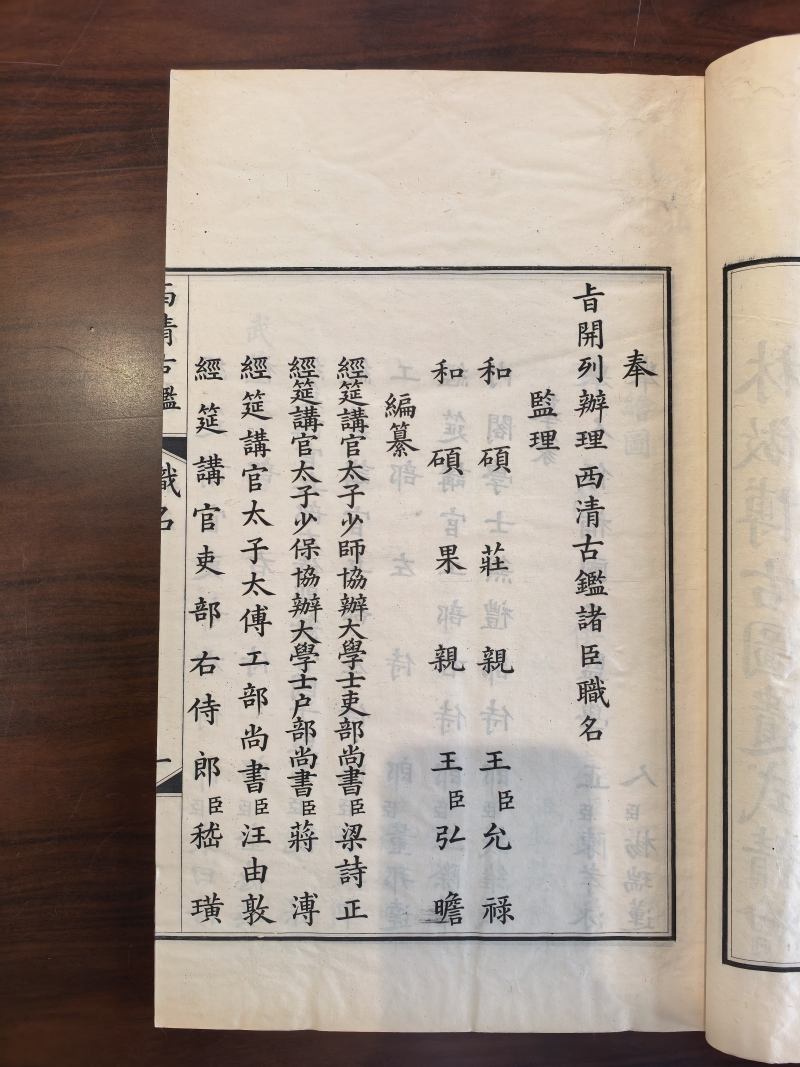 奉
旨開列辦理西清古鑑諸臣職名
監理
和碩莊親王臣允祿
和碩果親王臣弘曕
編纂
經筵講官太子少師協辦大學士吏部尚書臣梁詩正
經筵講官太子少保協辦大學士戶部尚書臣蔣溥
經筵講官太子太傅工部尚書臣汪由敦
經筵講官吏部右侍郎臣嵇璜
西清古鑑 職名 一